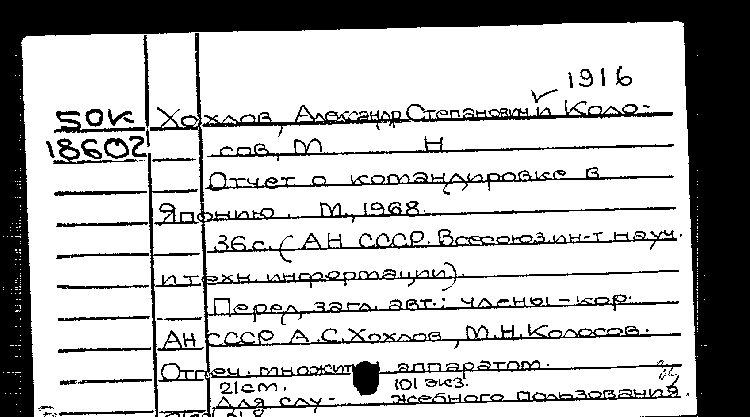 1916
50к Хохлов, Александр Степанович и Коло-
18602 сов, М Н
Отчет о командировке в
Японию. М., 1968.
36с. (АН СССР. Всесоюз.ин-т науч.
и техн. информации).
Перед загл. авт.: члены-кор.
АН СССР А.С.Хохлов, М.Н.Колосов.
Отпеч. множит. аппаратом.
21см. 101 экз.
Для слу- жебного пользования.